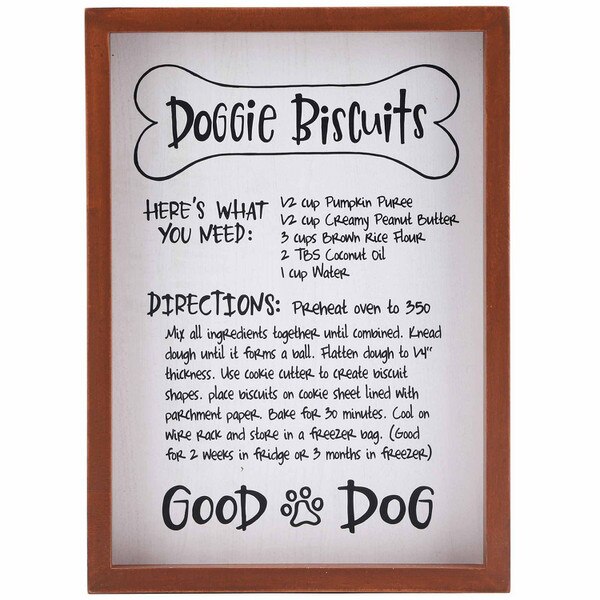 Doggie Biscuits
HERE'S WHAT
YOU NEED:
1/2 cup Pumpkin Puree
1/2 cup Creamy Peanut Butter
3 cups Brown Rice Flour
2 TBS Coconut Oil
1 cup Water
DIRECTIONS: Preheat oven to 350
Mix all ingredients together until combined. Knead
dough until it forms a ball. Flatten dough to 1/4"
thickness. Use cookie cutter to create biscuit
shapes. place biscuits on cookie sheet lined with
parchment paper. Bake for 30 minutes. Cool on
wire rack and store in a freezer bag. (Good
for 2 weeks in fridge or 3 months in freezer)
GOOD DOG